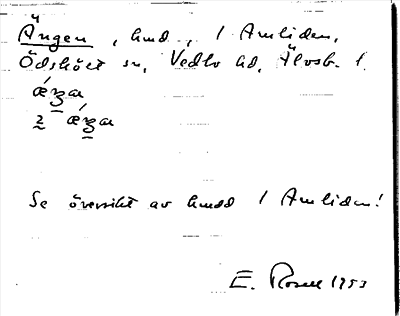 Ängen, hmd., 1 Amliden,
Ödskölt sn, Vedbo hd, Älvsb. l.
ǽŋar
2 ǽŋar
Se översikt av hmdd 1 Amliden!
E. Rosell 1953